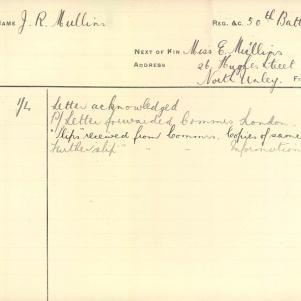 NAME J. R. Mullins REG. &C. 50th Batt
NEXT OF KIN Miss E. Mullins
ADDRESS 26, Hughes Street
North Unley.
1/4 Letter acknowledged
P/Letter forwarded Commrs. London.
"Slips" received from Commrs. Copies of same
Further slip " " - - Information